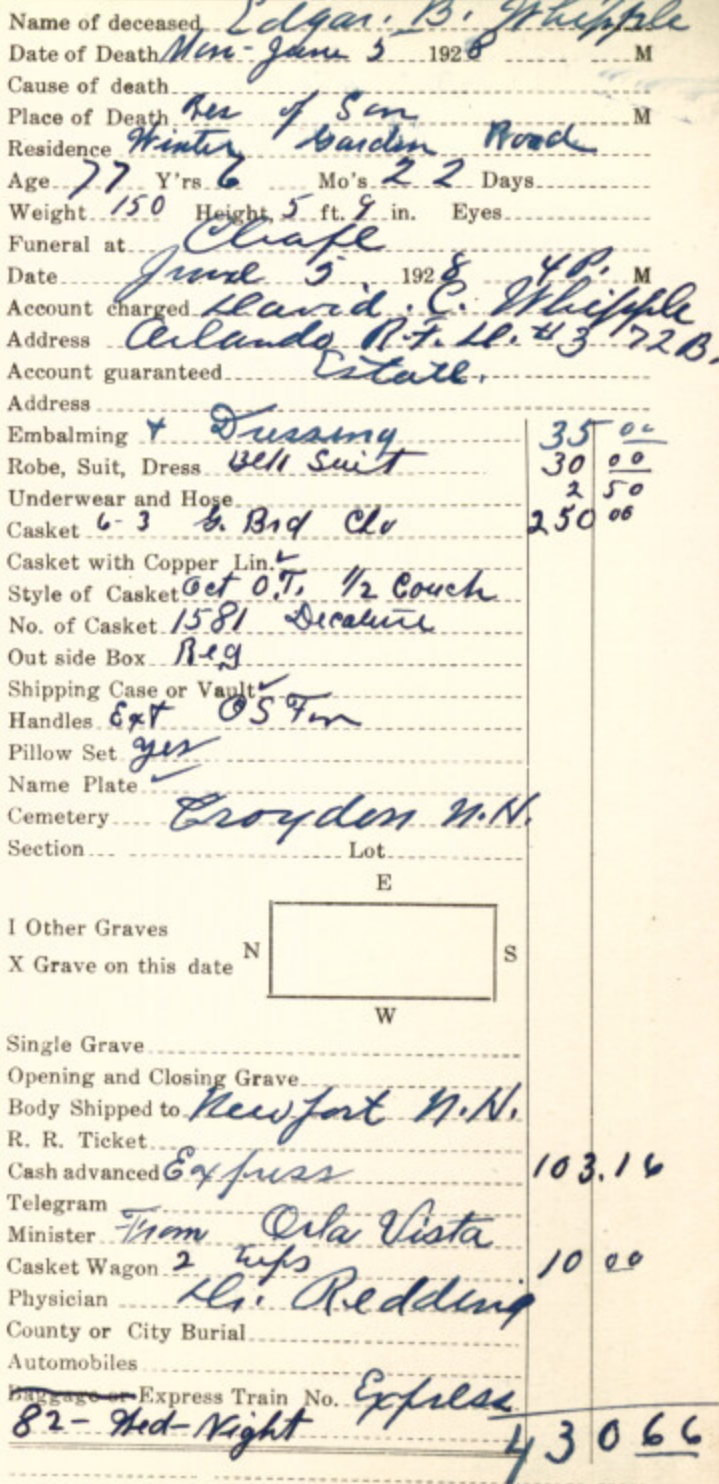 Name of deceased Edgar. B. Whipple
Date of Death Mon - June 5 1928 M
Cause of death
Place of Death Res of Son M
Residence Winter Garden Road
Age 77 Y'rs 6 Mo's 22 Days
Weight 150 Height, 5 ft. 9 in. Eyes
Funeral at Chaple
Date June 5 1928 4 P. M
Account charged David. C. Whipple
Address Orlando R.F.D. #3 72B.
Account guaranteed Estate.
Address
Embalming + Dressing 35 00
Robe, Suit, Dress Suit 30 00
Underwear and Hose 2 50
Casket 6-3 G. Brd Clo 250 00
Casket with Copper Lin. ✓
Style of Casket Oct O.T. 1/2 Couch
No. of Casket 1581
Out side Box Reg
Shipping Case or Vault ✓
Handles Ext OS
Pillow Set yes
Name Plate ✓
Cemetery Croydon N.H.
Section Lot
E
I Other Graves
N S
X Grave on this date
W
Single Grave
Opening and Closing Grave
Body Shipped to Newport N.H.
R. R. Ticket
Cash advanced Express 103.16
Telegram
Minister From Orla Vista
Casket Wagon 2 trips 10 00
Physician Dr. Redding
County or City Burial
Automobiles
Baggage or Express Train No. Express
82 - Wed - Night 430 66